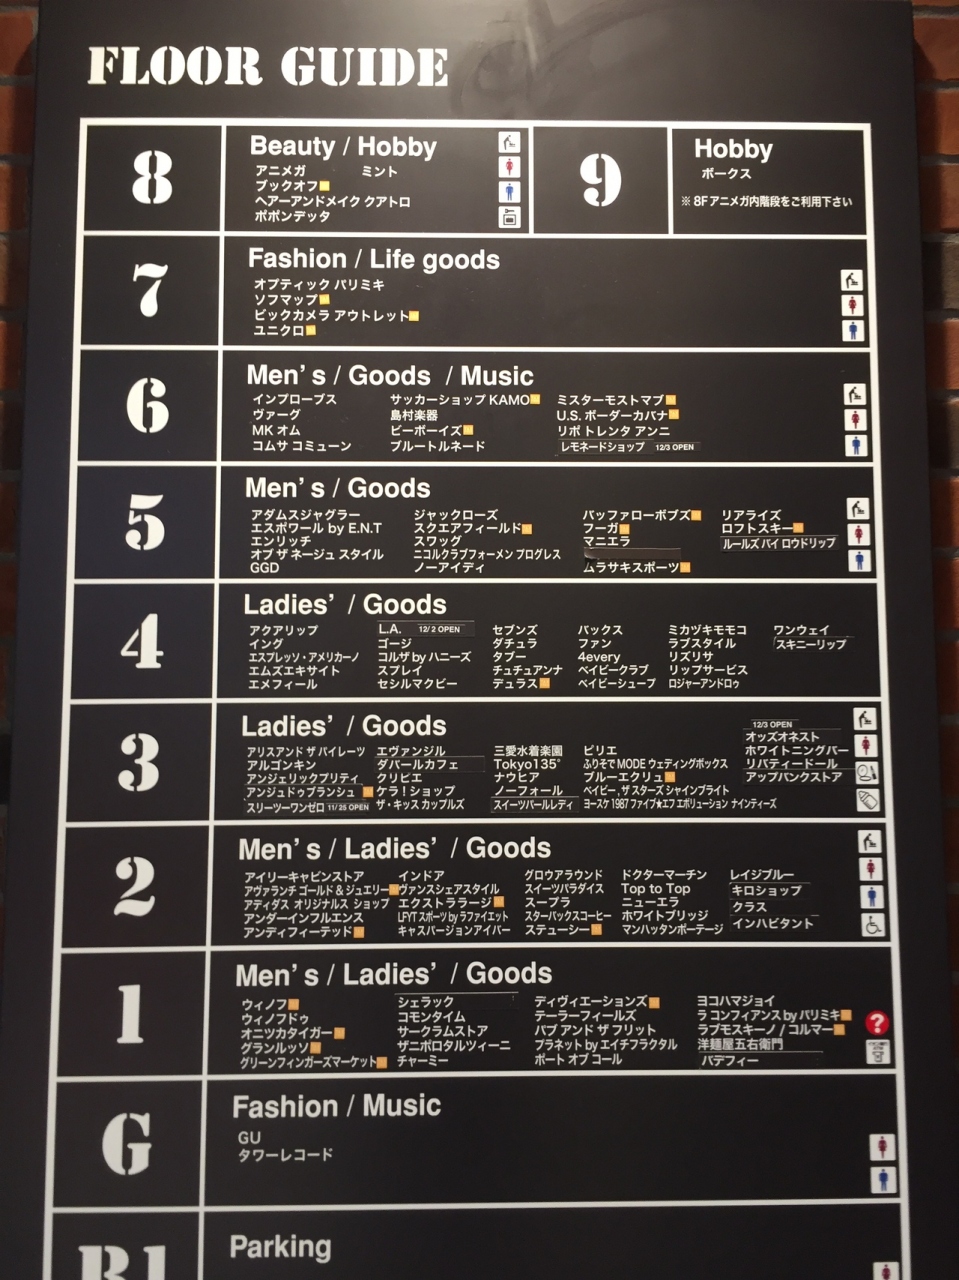 FLOOR GUIDE
8
Beauty / Hobby
アニメガ ミント
ブックオフ
ヘアーアンドメイク クアトロ
ポポンデッタ
9
Hobby
ボークス
※ 8F アニメガ内階段をご利用下さい
7
Fashion / Life goods
オプティック パリミキ
ソフマップ
ビックカメラ アウトレット
ユニクロ
6
Men's / Goods / Music
インプローブス サッカーショップ KAMO ミスターモストマブ
ヴァーグ 島村楽器 U.S. ボーダーカバナ
MK オム ビーボーイズ リポ トレンタ アンニ
コムサ コミューン ブルートルネード レモネードショップ 12/3 OPEN
5
Men's / Goods
アダムスジャグラー ジャックローズ バッファローボブズ リアライズ
エスポワール by E.N.T スクエアフィールド フーガ ロフトスキー
エンリッチ スワッグ マニエラ ルールズ バイ ロウドリップ
オブ ザ ネージュ スタイル ニコルクラブフォーメン プログレス
GGD ノーアイディ ムラサキスポーツ
4
Ladies' / Goods
アクアリップ L.A. 12/2 OPEN セブンズ バックス ミカヅキモモコ ワンウェイ
イング ゴージ ダチュラ ファン ラブスタイル スキニーリップ
エスプレッソ・アメリカーノ コルザ by ハニーズ タブー 4every リズリサ
エムズエキサイト スプレイ チュチュアンナ ベイビークラブ リップサービス
エメフィール セシルマクビー デュラス ベイビーシューブ ロジャーアンドロゥ
3
Ladies' / Goods
12/3 OPEN
オッズオネスト
アリスアンド ザ パイレーツ エヴァンジル 三愛水着楽園 ビリエ ホワイトニングバー
アルゴンキン ダバールカフェ Tokyo135° ふりそでMODE ウェディングボックス リバティードール
アンジェリックプリティ クリビエ ナウヒア ブルーエクリュ アップバンクストア
アンジュドゥブランシュ ケラ！ショップ ノーフォール ベイビー, ザ スターズ シャインブライト
スリーツーワンゼロ 11/25 OPEN ザ・キッス カップルズ スイーツパールレディ ヨースケ 1987 ファイブ★エフ エボリューション ナインティーズ
2
Men's / Ladies' / Goods
アイリーキャビンストア インドア グロウアラウンド ドクターマーチン レイジブルー
アヴァランチ ゴールド & ジュエリー ヴァンスシェアスタイル スイーツパラダイス Top to Top キロショップ
アディダス オリジナルス ショップ エクストララージ スープラ ニューエラ クラス
アンダーインフルエンス LFYT スポーツ by ラファイエット スターバックスコーヒー ホワイトブリッジ インハビタント
アンディフィーテッド キャスパージョンアイバー ステューシー マンハッタンポーテージ
1
Men's / Ladies' / Goods
ウィノフ シェラック ディヴィエーションズ ヨコハマジョイ
ウィノフドゥ コモンタイム テーラーフィールズ ラ コンフィアンス by パリミキ
オニツカタイガー サークラムストア パブ アンド ザ フリット ラブモスキーノ / コルマー
グランルッソ ザニポロタルツィーニ プラネット by エイチフラクタル 洋麺屋五右衛門
グリーンフィンガーズマーケット チャーミー ポート オブ コール バデフィー
G
Fashion / Music
GU
タワーレコード
B1
Parking